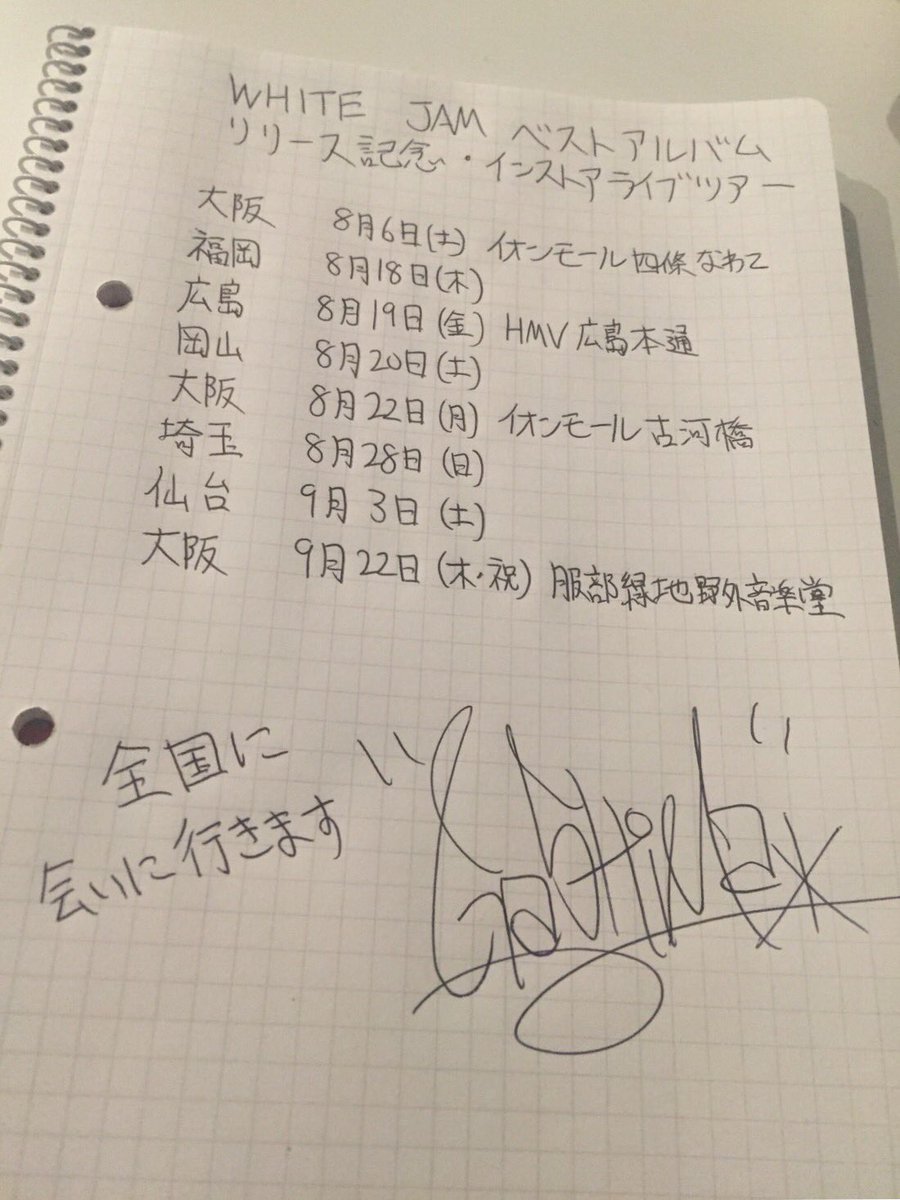 WHITE JAM ベストアルバム
リリース記念・インストアライブツアー
大阪 8月6日(土) イオンモール四條なわて
福岡 8月18日(木)
広島 8月19日(金) HMV広島本通
岡山 8月20日(土)
大阪 8月22日(月) イオンモール古河橋
埼玉 8月28日(日)
仙台 9月3日(土)
大阪 9月22日(木・祝) 服部緑地野外音楽堂
全国に
会いに行きます